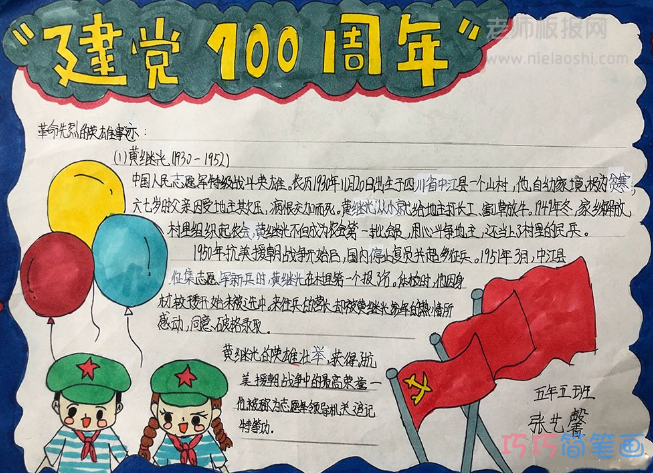 "建党100周年"
老师板报网
www.nielaoshi.com
革命先烈的英雄事迹:
(1)黄继光(1930-1952)
中国人民志愿军特级战斗英雄。农历1930年11月20日出生于四川省中江县一个山村,他自幼家境极为贫寒,
六七岁时父亲因受地主欺压,病恨交加而死。黄继光从小就给地主打长工、割草放牛。1949年冬,家乡解放,
村里组织起农会,黄继光不但成为农会第一批会员,用心斗争地主,还当上了村里的民兵。
1950年抗美援朝战争开始后,国内停止复员并起乡征兵。1951年3月,中江县
征集志愿军新兵时,黄继光在村里第一个报了名。体检时,他因身
材较矮开始未被选中,来征兵的营长却被黄继光参军的热情所
感动,同意破格录取。
黄继光的英雄壮举,获得抗
美援朝战争中的最高荣誉—
他被称为志愿军领导机关追记
特等功。
五年五班
张艺馨
巧巧简笔画